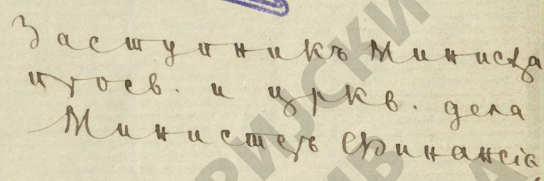 Заступникъ Министра
просв. и цркв. дела
Министеръ Финансіе